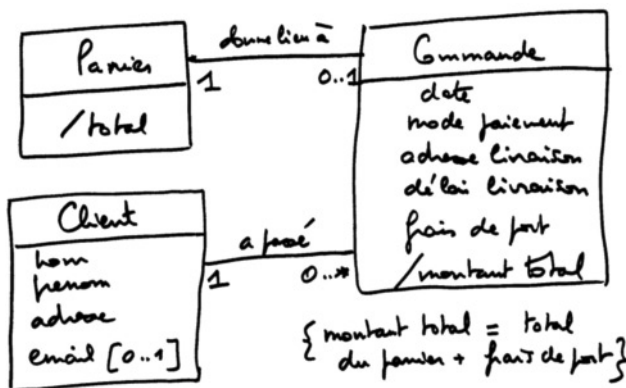 Panier
/total
donne lien à
1
0..1
Commande
date
mode paiement
adresse livraison
délai livraison
frais de port
/montant total
Client
nom
prenom
adresse
email [0..1]
a passé
1
0..*
{montant total = total
du panier + frais de port}